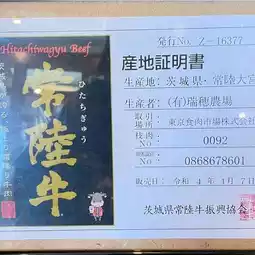 Hitachiwagyu Beef
常陸牛
ひたちぎゅう
発行No. Z-16377
産地証明書
生産地: 茨城県・常陸大宮
生産者: (有)瑞穂農場
取引場: 東京食肉市場株式会社
枝肉No: 0092
No: 0868678601
販売日: 令和 4年 1月7日
茨城県常陸牛振興協会